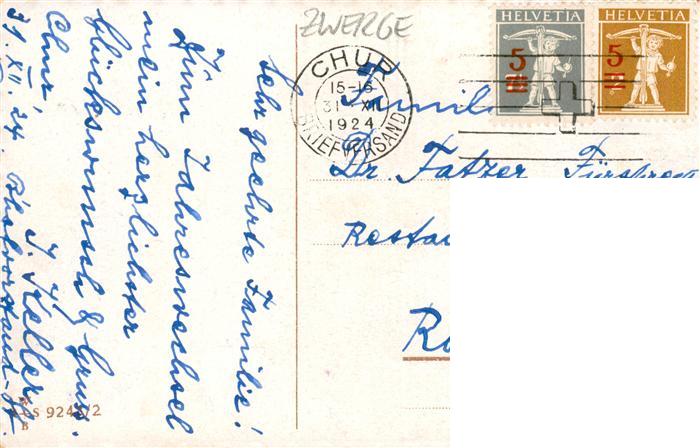 ZWERGE
HELVETIA
HELVETIA
5
5
CHUR
15-16
31. XII
1924
BRIEFVERSAND
Familie
Dr. Fatzer, Fürsprech
Restau
Ro
Sehr geehrte Familie!
Zum Jahreswechsel
mein herzlichster
Glückwunsch & Gruss.
J. Keller
Chur
31. XII. 24.
S 924 /2
B